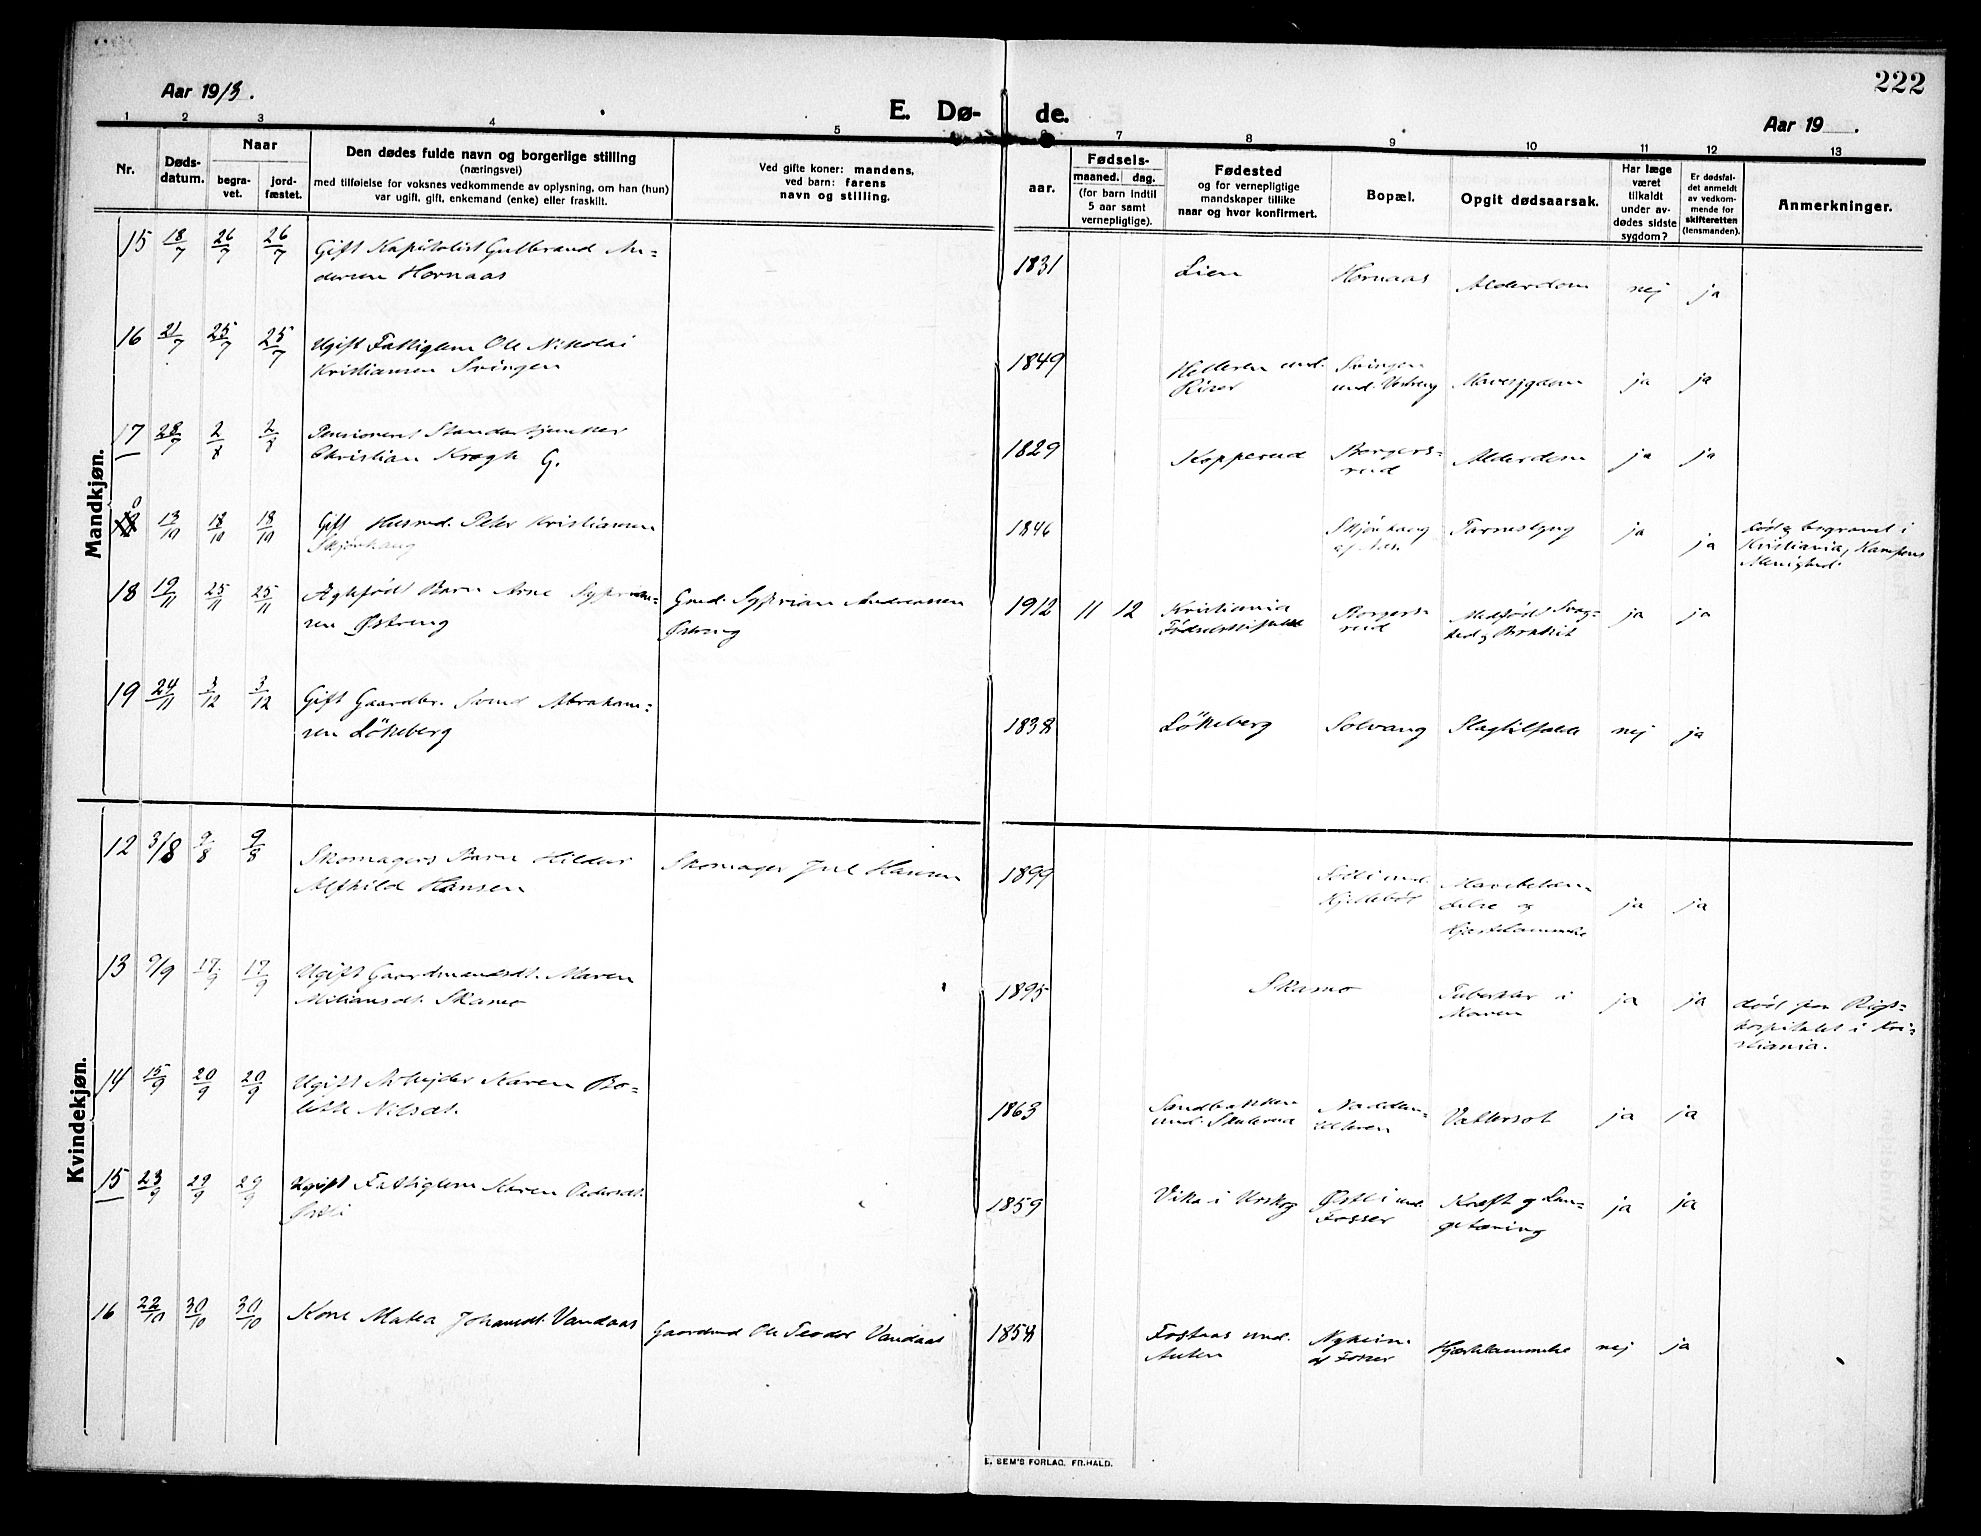 222
Aar 1913.
E. Dø-
de.
Aar 19 .
1 2 3 4 5 6 7 8 9 10 11 12 13
Nr.
Døds-
datum.
Naar
begra-
vet.
jord-
fæstet.
Den dødes fulde navn og borgerlige stilling
(næringsvei)
med tilføielse for voksnes vedkommende av oplysning, om han (hun)
var ugift, gift, enkemand (enke) eller fraskilt.
Ved gifte koner: mandens,
ved barn: farens
navn og stilling.
aar.
Fødsels-
maaned. dag.
(for barn indtil
5 aar samt
vernepligtige).
Fødested
og for vernepligtige
mandskaper tillike
naar og hvor konfirmert.
Bopæl.
Opgit dødsaarsak.
Har læge
været
tilkaldt
under av-
dødes sidste
sygdom?
Er dødsfal-
det anmeldt
av vedkom-
mende for
skifteretten
(lensmanden).
Anmerkninger.
Mandkjøn.
15 18/7 26/7 26/7 Gift Kapitalist Gulbrand An=
dersen Hornaas
1831 Lien Hornaas Alderdom nej ja
16 21/7 25/7 25/7 Ugift Fattiglem Ole Nikolai
Kristiansen Svingen
1849 Helleren und. Svingen
Riser und. Vestreng Mavesygdom ja ja
17 28/7 2/8 2/8 Pensioneret Standartjunker
Christian Krogh G.
1829 Kopperud Borgers=
rud Alderdom ja ja
13/10 18/10 18/10 Gift Husmd. Peter Kristiansen
Skjønhaug
1846 Skjønhaug
Tarmslyng ja ja Død og begravet i
Kristiania, Kampens
Menighed.
18 19/11 25/11 25/11 Ægtefødt Barn Arne Syprian=
sen Østreng
Gmd. Syprian Andreassen
Østreng
1912 11 12 Kristiania
Fødselsstiftelse Borgers=
rud Medfødt Svag=
hed og Bronkit ja ja
19 24/11 3/12 3/12 Gift Gaardbr. Svend Abraham=
sen Løkeberg
1838 Løkeberg Solvang Slagtilfælde nej ja
Kvindekjøn.
12 3/8 9/8 9/8 Skomagers Barn Hildur
Alfhild Hansen
Skomager Jul Hansen
1899 und.
Kjellebøl Mavebetæn=
delse og
Hjertelammelse ja ja
13 9/9 17/9 17/9 Ugift Gaardmandsdt. Maren
Miliansdt. Skamo
1895 Skamo Tuberkler i
Maven ja ja død paa Rigs=
hospitalet i Kri=
stiania.
14 15/9 20/9 20/9 Ugift Arbejder Karen Bo=
lette Nilsdt.
1863 Sandbakken
und. Skulerud Nadden=
Vattersot ja ja
15 23/9 29/9 29/9 Ugift Fattiglem Karen Pedersdt.
Østli
1859 Vika i Urskog Østli und.
Fosser Kræft og Lun=
getæring ja ja
16 22/10 30/10 30/10 Kone Matea Johannsdt. Vandaas
Gaardmd Ole Teodor Vandaas
1858 Fosaas und.
Aulen Nyheim
af Fosser Hjertelammelse nej ja
E. SEM'S FORLAG, FR.HALD.